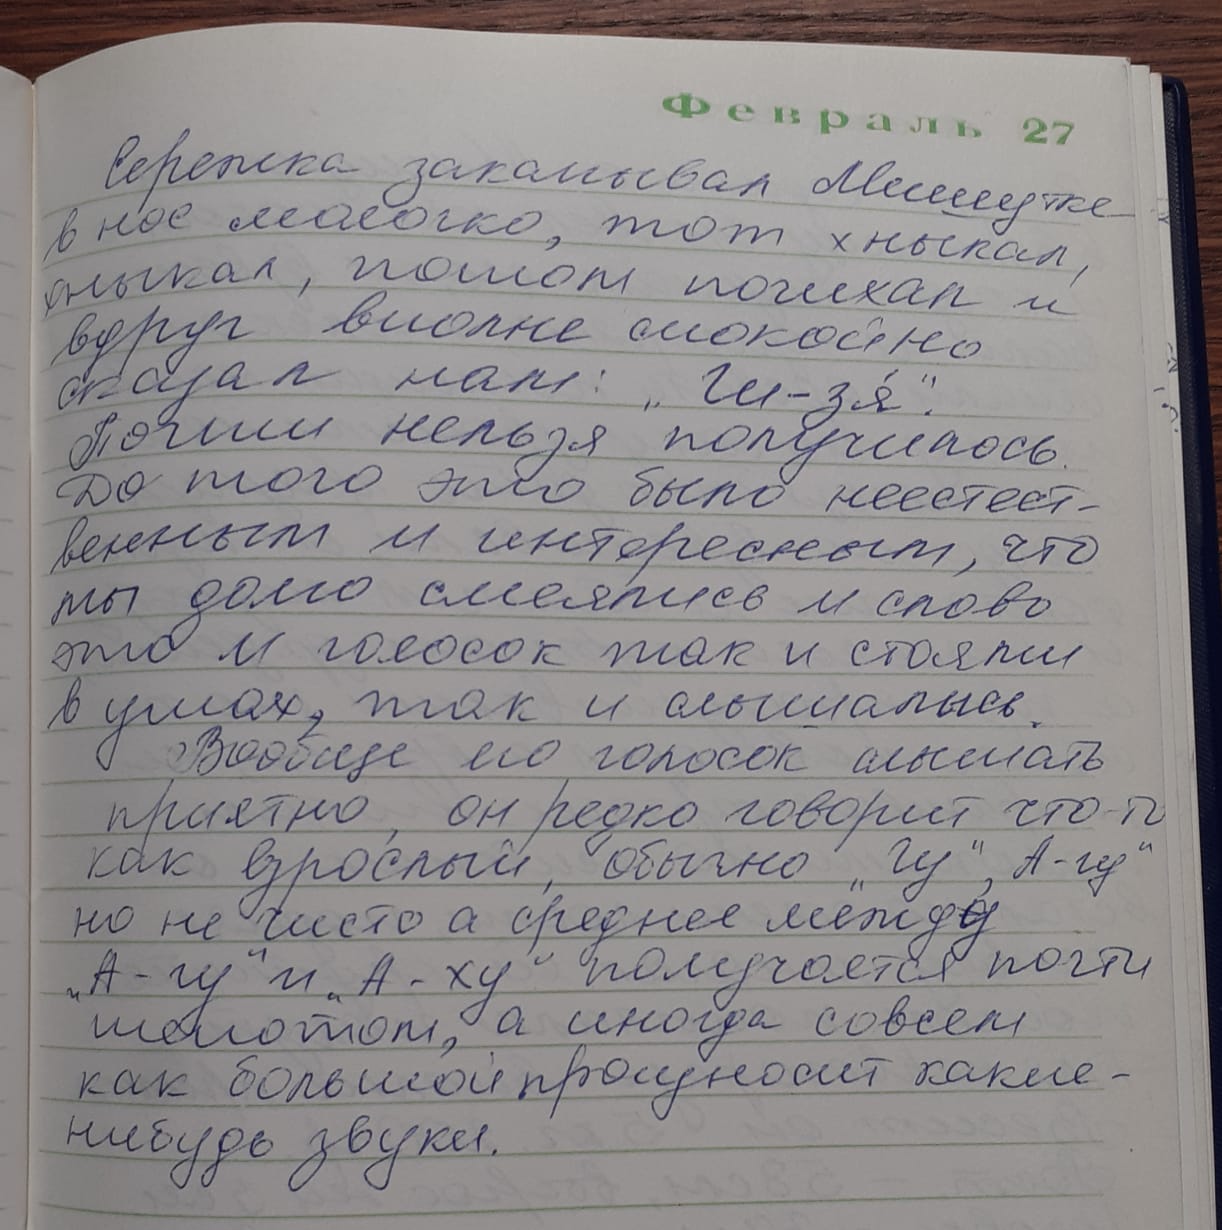 Февраль 27
Сережка закапывал Мишутке
в нос молочко, тот хныкал,
хныкал, потом почихал и
вдруг вполне спокойно
сказал нам: „Ги-зя́".
Почти нельзя получилось.
До того это было неестест-
венным и интересным, что
мы долго смеялись и слово
это и голосок так и стояли
в умах, так и слышались.
Вообще его голосок слышать
приятно, он редко говорит что-то
как взрослый, обычно „Гу", А-гу"
но не чисто а среднее между
„А-гу" и „А-ху" получается почти
шепотом, а иногда совсем
как большой произносит какие-
нибудь звуки.